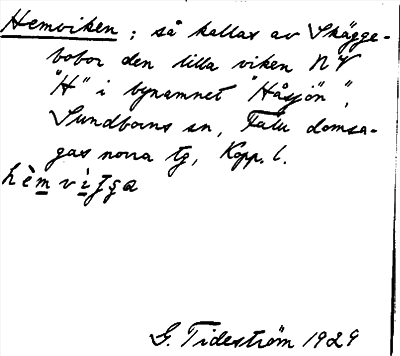 Hemviken; så kallas av Skägge-
bobor den lilla viken NV
"H" i bynamnet "Håsjön",
Sundborns sn, Falu domsa-
gas norra tg, Kopp. l.
G. Tideström 1929